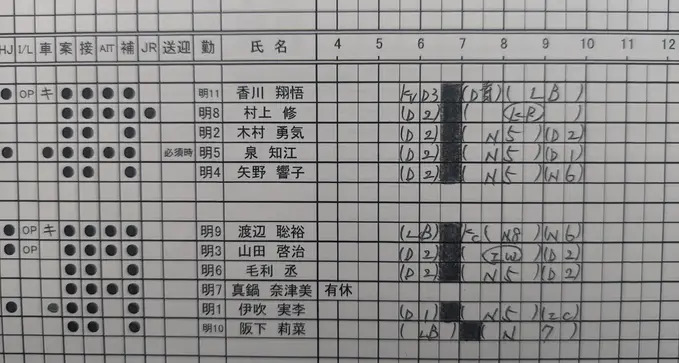 HJ I/L 車 案 接 AIT 補 JR 送迎 勤 氏 名 4 5 6 7 8 9 10 11 12
● OP キ ● ● ● ● 明11 香川 翔悟 D3 (D (LB)
● ● ● ● ● 明8 村上 修 (D2) (KR)
● ● ● 明2 木村 勇気 (D2) (N5) (D2)
● ● ● ● ● ● 必須時 明5 泉 知江 (D2) (N5) (D1)
● ● ● 明4 矢野 響子 (D2) (N5) (N6)
● OP キ ● ● ● ● 明9 渡辺 聡裕 (LB) Kc (N8) (N6)
● OP ● ● ● ● 明3 山田 啓治 (D2) (IW) (D2)
● ● ● 明6 毛利 丞 (D2) (N5) (D2)
● ● ● ● 明7 真鍋 奈津美 有休
● ● ● ● ● 明1 伊吹 実李 (D1) (N5) (IC)
● ● ● 明10 阪下 莉菜 (LB) (N7)